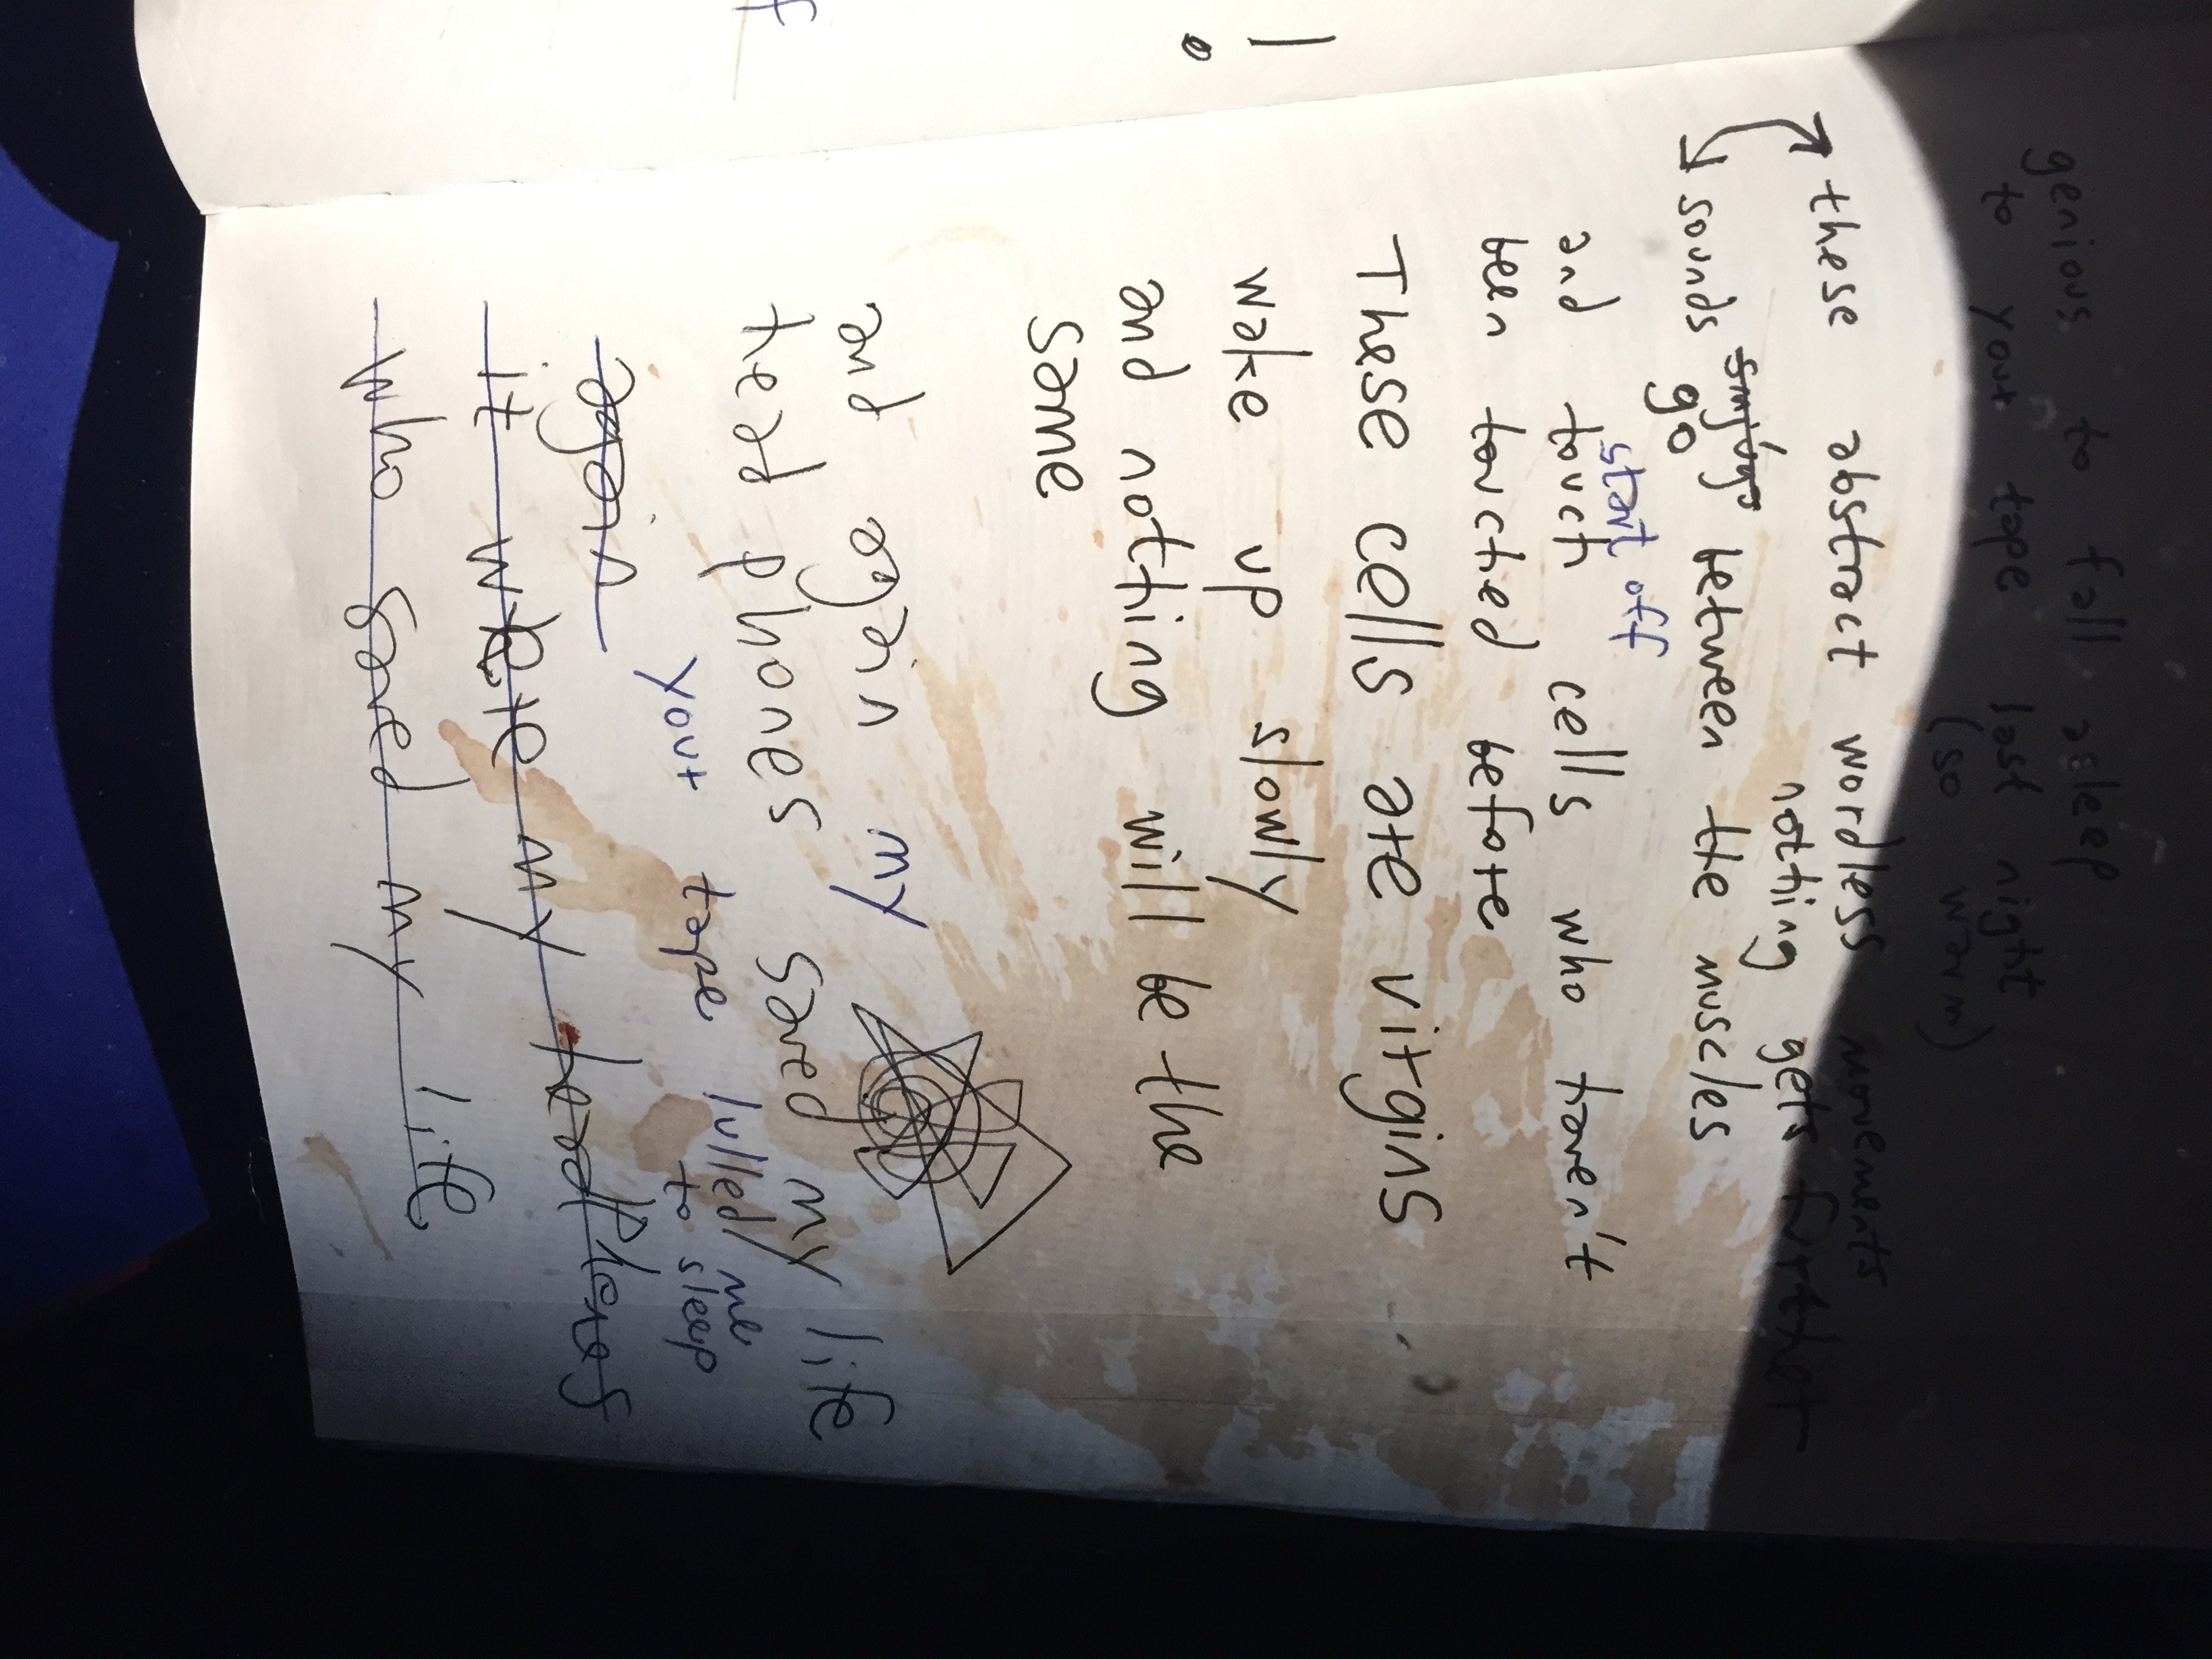 genious to fall asleep
to your tape last night
(so warm)
these abstract wordless movements
nothing gets further
sounds between the muscles
go
start off
and touch cells who haven't
been touched before
These cells are virgins
wake up slowly
and nothing will be the
same
and again my
headphones saved my life
your tape lulled me
to sleep
again
it were my headphones
who saved my life
!